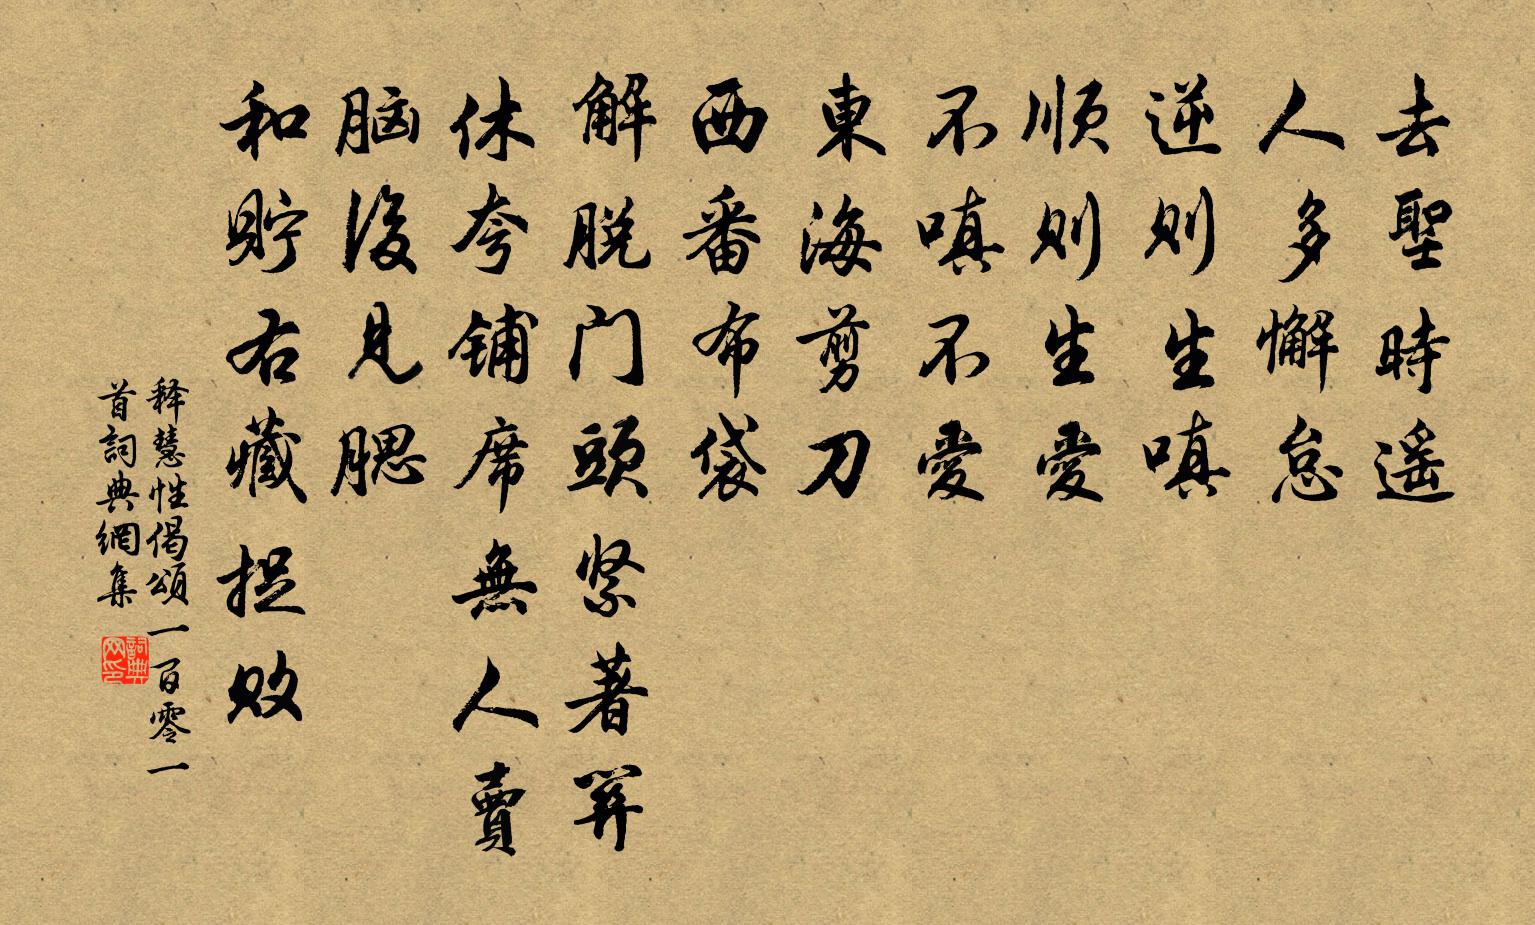 去聖時遥
人多懈怠
逆則生嗔
順則生愛
不嗔不愛
東海剪刀
西番布袋
解脱门頭紧著筭
休夸铺席無人賣
脑後見腮
和貯右藏捉败
释慧性偈頌一百零一
首詞典網集
詞典网印